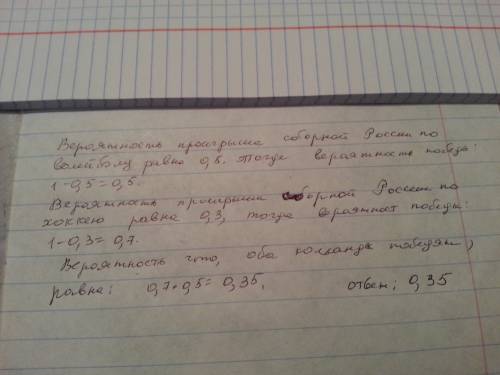 Вероятность проигрыша сборной России по
волейболу равна 0,5. Тогда вероятность победы:
1-0,5=0,5.
Вероятность проигрыша сборной России по
хоккею равна 0,3, тогда вероятност победы:
1-0,3=0,7.
Вероятность что, оба команды победят,
равна: 0,7*0,5=0,35. ответ: 0,35